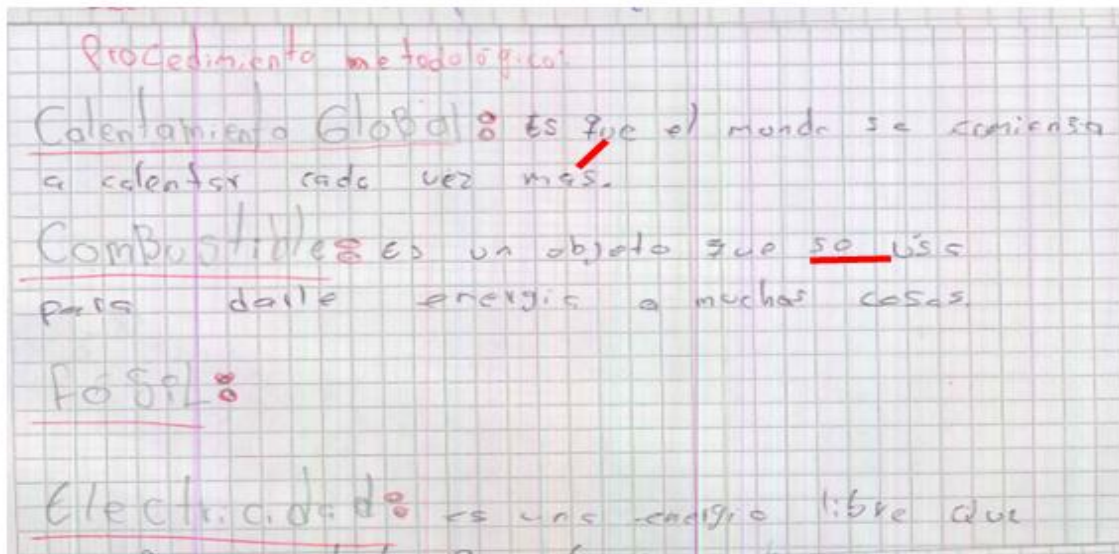 Procedimiento metodológico:
Calentamiento GloBal: Es que el mundo se comiensa
a calentar cada vez más.
ComBustible: es un objeto que se usa
para darle energia a muchas cosas.
FóSiL:
Electricidad: es una energia libre que